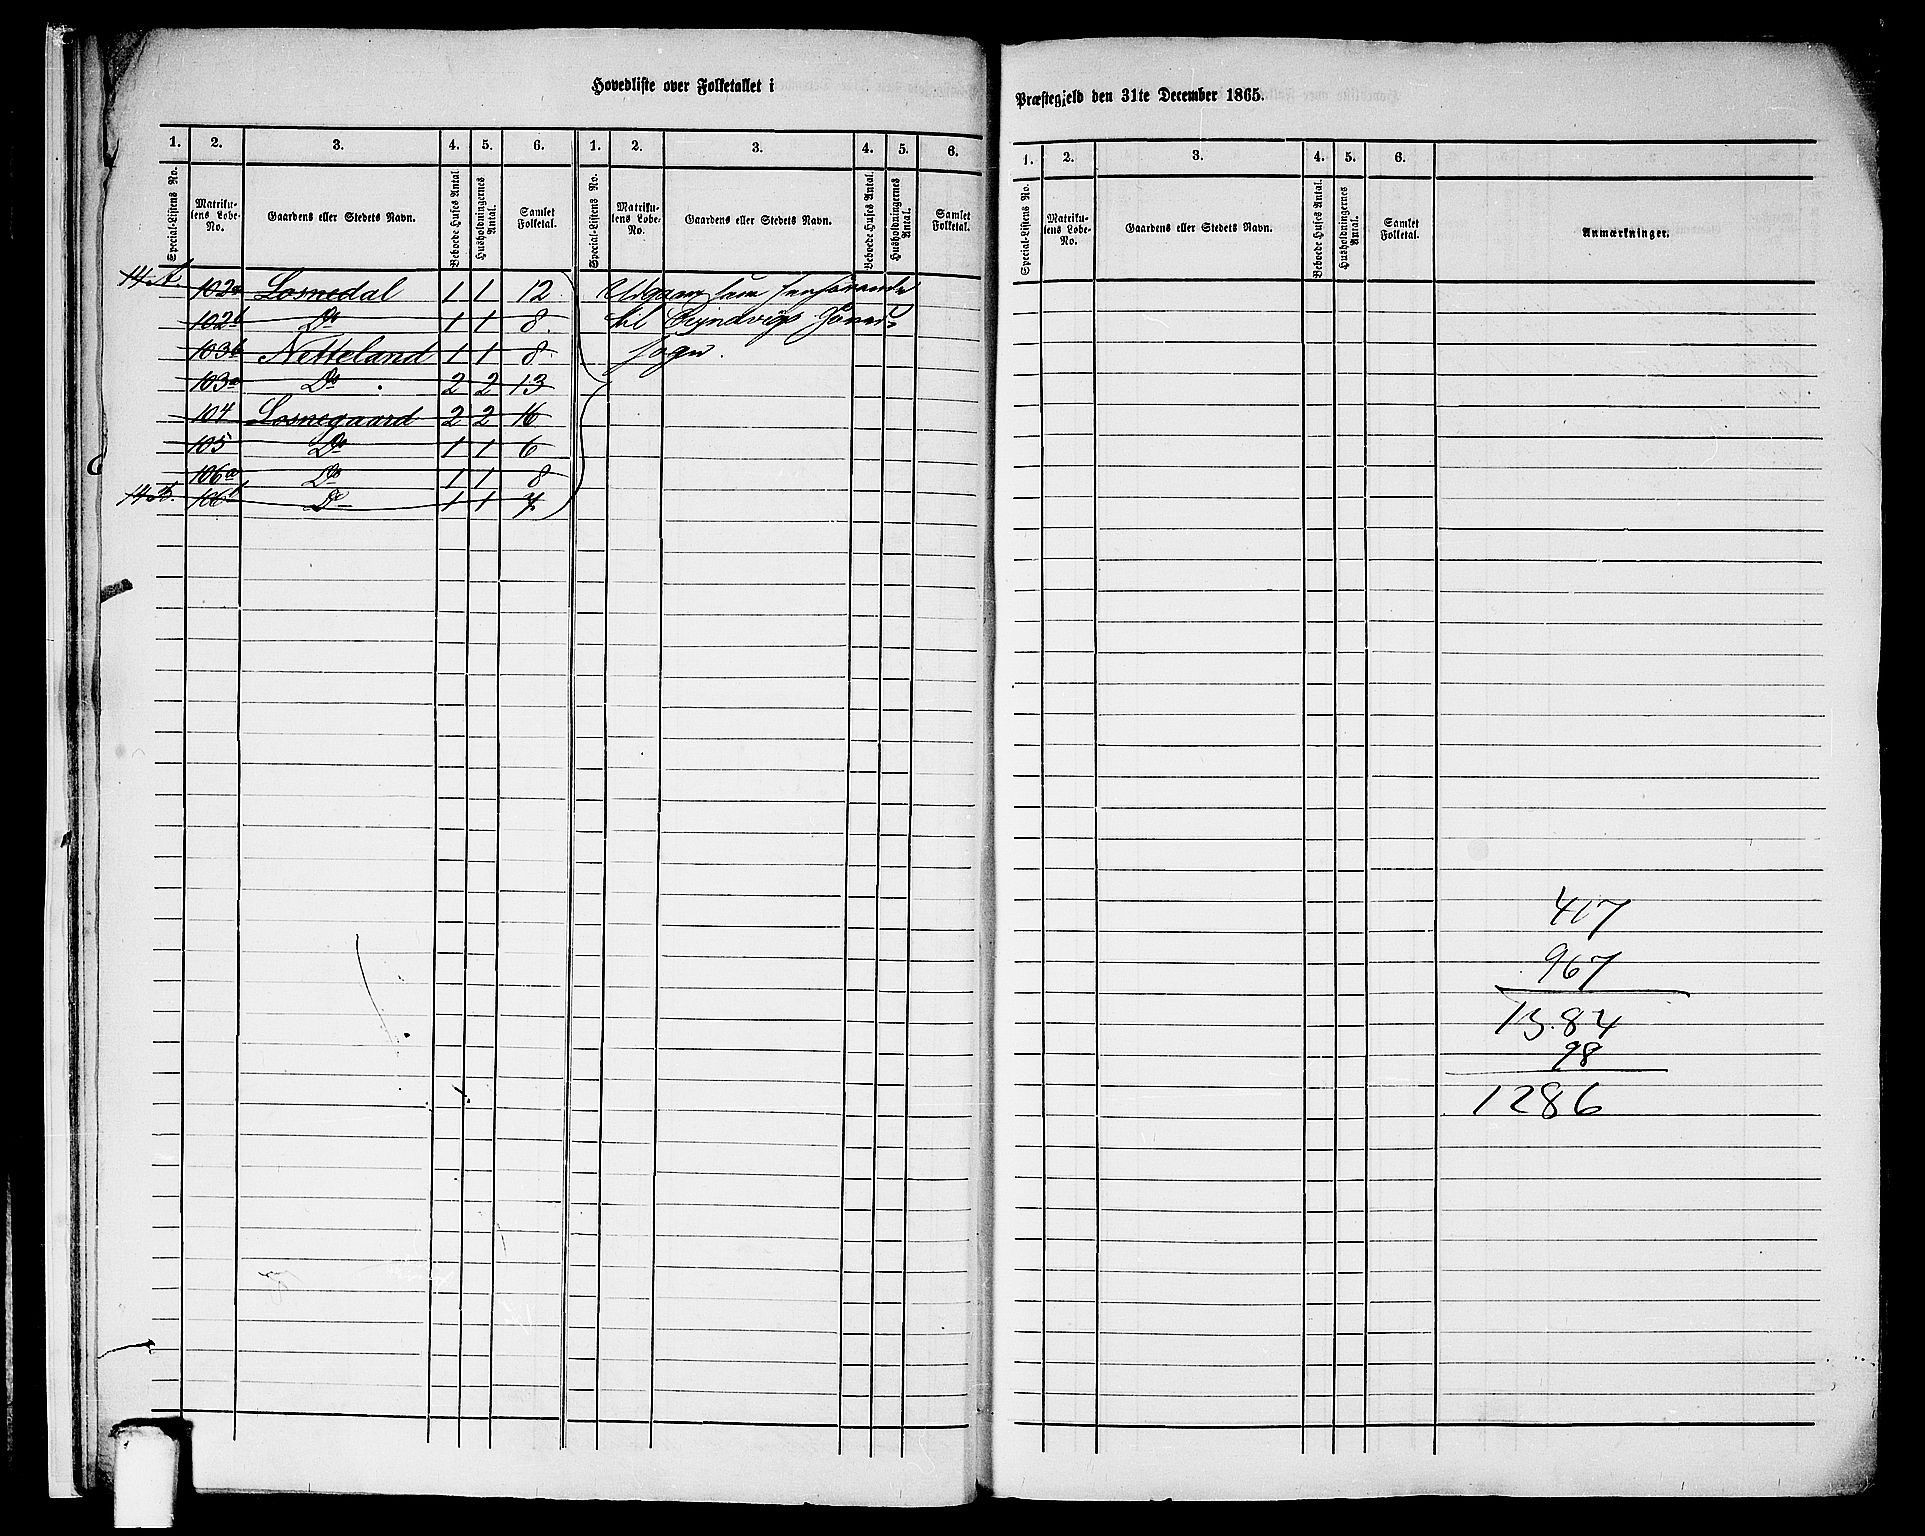 Hovedliste over Folketallet i
1. 2. 3. 4. 5. 6. 1. 2. 3. 4. 5. 6.
Special-Listens No. Matriku-lens Løbe-No. Gaardens eller Stedets Navn. Beboede Huses Antal. Husholdningernes Antal. Samlet Folketal. Special-Listens No. Matriku-lens Løbe-No. Gaardens eller Stedets Navn. Beboede Huses Antal. Husholdningernes Antal. Samlet Folketal.
14 A. 102a Losnedal 1 1 12 Udgaar som henhørende
102b Do 1 1 8 til Evindvigs Præste-
103b Netteland 1 1 8 sogn.
103a Do 2 2 13
104 Losnegaard 2 2 16
105 Do 1 1 6
106a Do 1 1 8
14 B. 106b Do 1 1 7
Præstegjeld den 31te December 1865.
1. 2. 3. 4. 5. 6.
Special-Listens No. Matriku-lens Løbe-No. Gaardens eller Stedets Navn. Beboede Huses Antal. Husholdningernes Antal. Samlet Folketal. Anmærkninger.
417
967
1384
98
1286